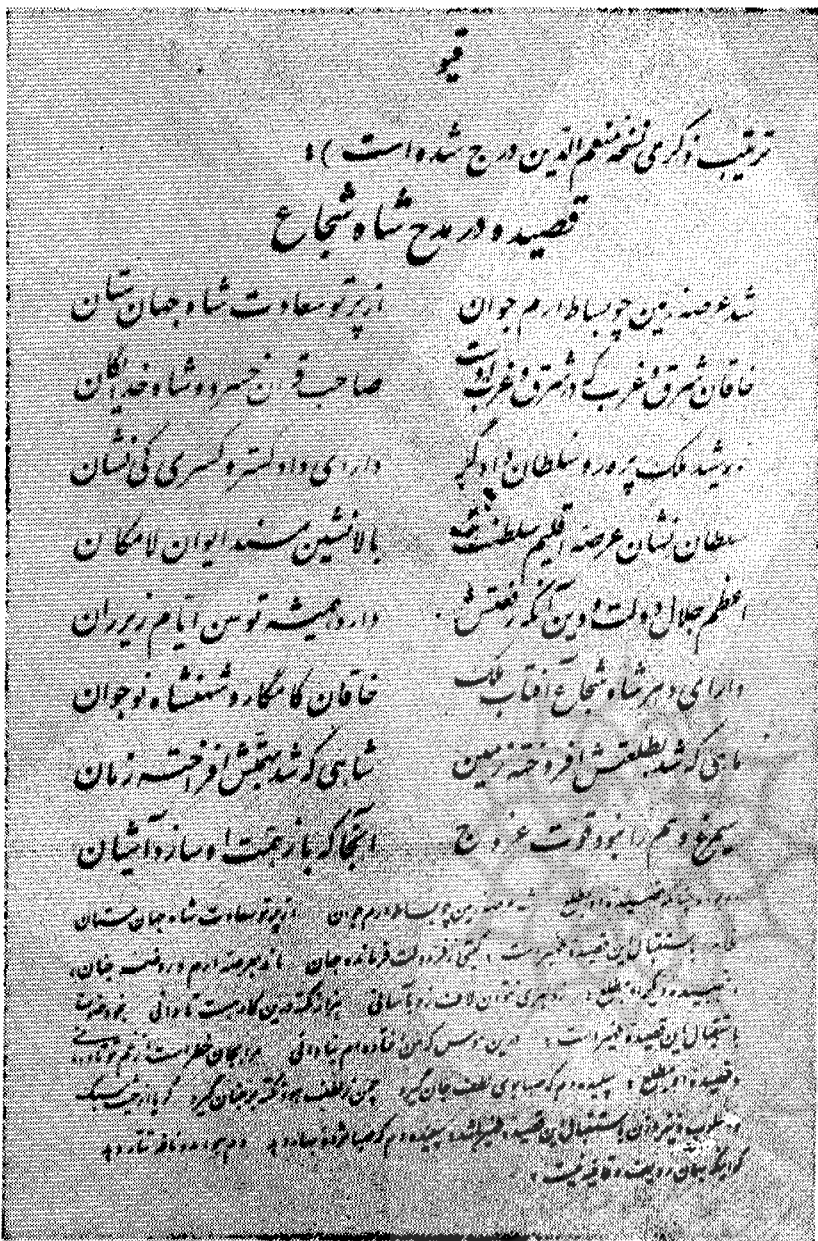 قیو
ترتیب ذکری نسخه منعم الدین درج شده است):
قصیده در مدح شاه شجاع
شد عرصه زمین چو بساط ارم جوان از پرتو سعادت شاه جهان ستان
خاقان شرق و غرب که در شرق و غرب اوست صاحب قران خسرو و شاه خدایگان
خورشید ملک پرور و سلطان دادگر دارای دادگستر و کسری کی نشان
سلطان نشان عرصه اقلیم سلطنت بالانشین مسند ایوان لامکان
اعظم جلال دولت و دین آنکه رفعتش دارد همیشه توسن ایام زیر ران
دارای دهر شاه شجاع آفتاب ملک خاقان کامگار و شهنشاه نوجوان
ماهی که شد بطلعتش افروخته زمین شاهی که شد بهمتش افراخته زمان
سیمرغ وهم را نبود قوت عروج آنجا که باز همت او سازد آشیان
قصیده او بمطلع شد عرصه زمین چو بساط ارم جوان از پرتو سعادت شاه جهان ستان
باستقبال این قصیده ظهیر است: گیتی ز فر دولت فرمانده جهان ماند بعرصه ارم و روضه جنان،
قصیده دیگر او بمطلع: ز دلبری نتوان لاف زد بآسانی هزار نکته درین کار هست تا دانی
باستقبال این قصیده ظهیر است: درین هوس که من افتاده ام بنادانی مرا بجان خطر است از غم تو تا دانی
و قصیده او بمطلع: سپیده دم که صبا بوی لطف جان گیرد چمن ز لطف هوا نکته بر جنان گیرد
باستقبال این قصیده ظهیر سپیده دم که صبا مژده بهار دهد دم هوا مدد نافه تتار دهد
ردیف و قافیه نیست.